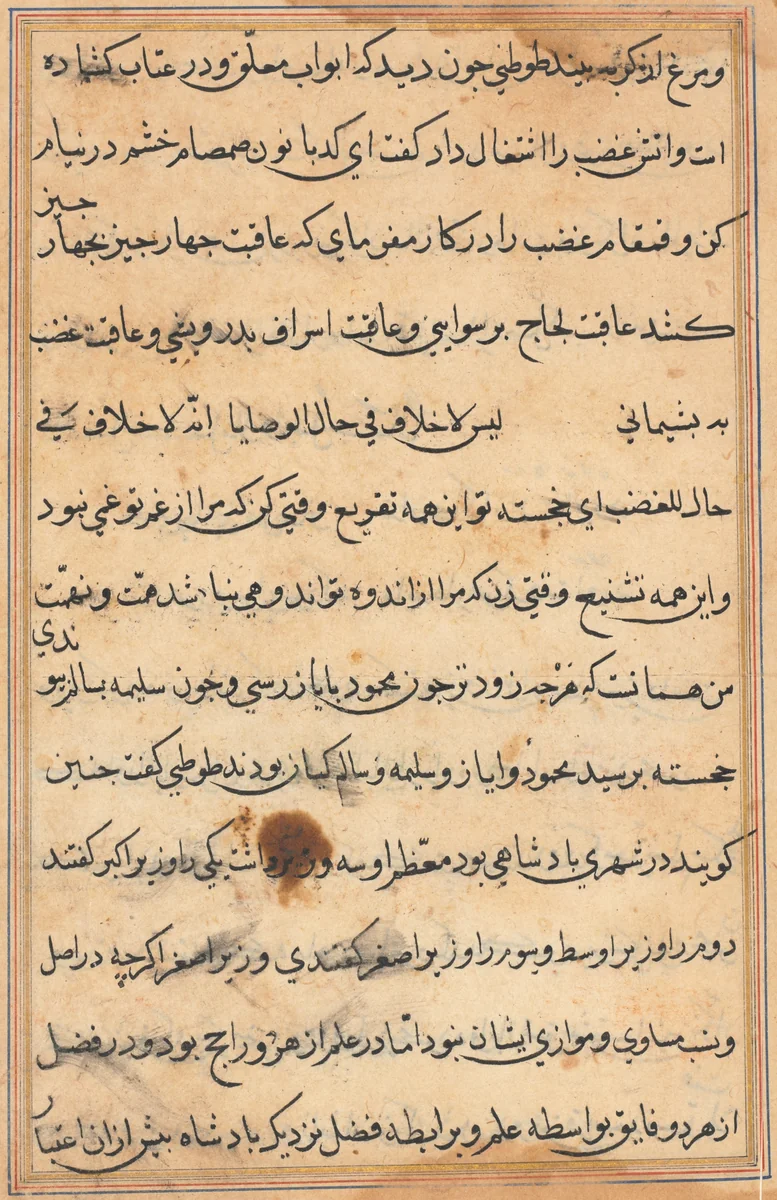 و مرغ از کربه بیند طوطی جون دید که ابواب معلّق و در عتاب کشاده
است و اتش غضب را اشتغال داد کفت ای کدبانون صمصام خشم در نیام
کن و قمقام غضب را در کار مفرمای که عاقبت جهار جیز بجهار جیز
کشد عاقبت لجاج برسوایی و عاقبت اسراف بدرویشی و عاقبت غضب
بد بشیمانی لیس لاخلاف فی حال الوصایا انّه لاخلاف فی
حال للغضب ای خجسته تو این همه تقریع وقتی کن که مرا از غم تو غمی نبود
و این همه تشنیع وقتی زن که مرا از اندوه تو اندوهی نباشد همّت و نهمّت
من همانست که هرجه زودتر جون محمود بایاز رسی و جون سلیمه بسالم بیوندی
خجسته برسید محمود و ایاز و سلیمه و سالم کیان بودند طوطی کفت جنین
کویند در شهری بادشاهی بود معظّم او سه وزیر داشت یکی را وزیر اکبر کفتند
دوم را وزیر اوسط و سوم را وزیر اصغر کفتندی وزیر اصغر اکرچه در اصل
و نسب مساوی و موازی ایشان نبود امّا در علم از هر دو راجح بود و در فضل
از هر دو فایق بواسطه علم و برابطه فضل نزدیک بادشاه بیش از ان اعتبار